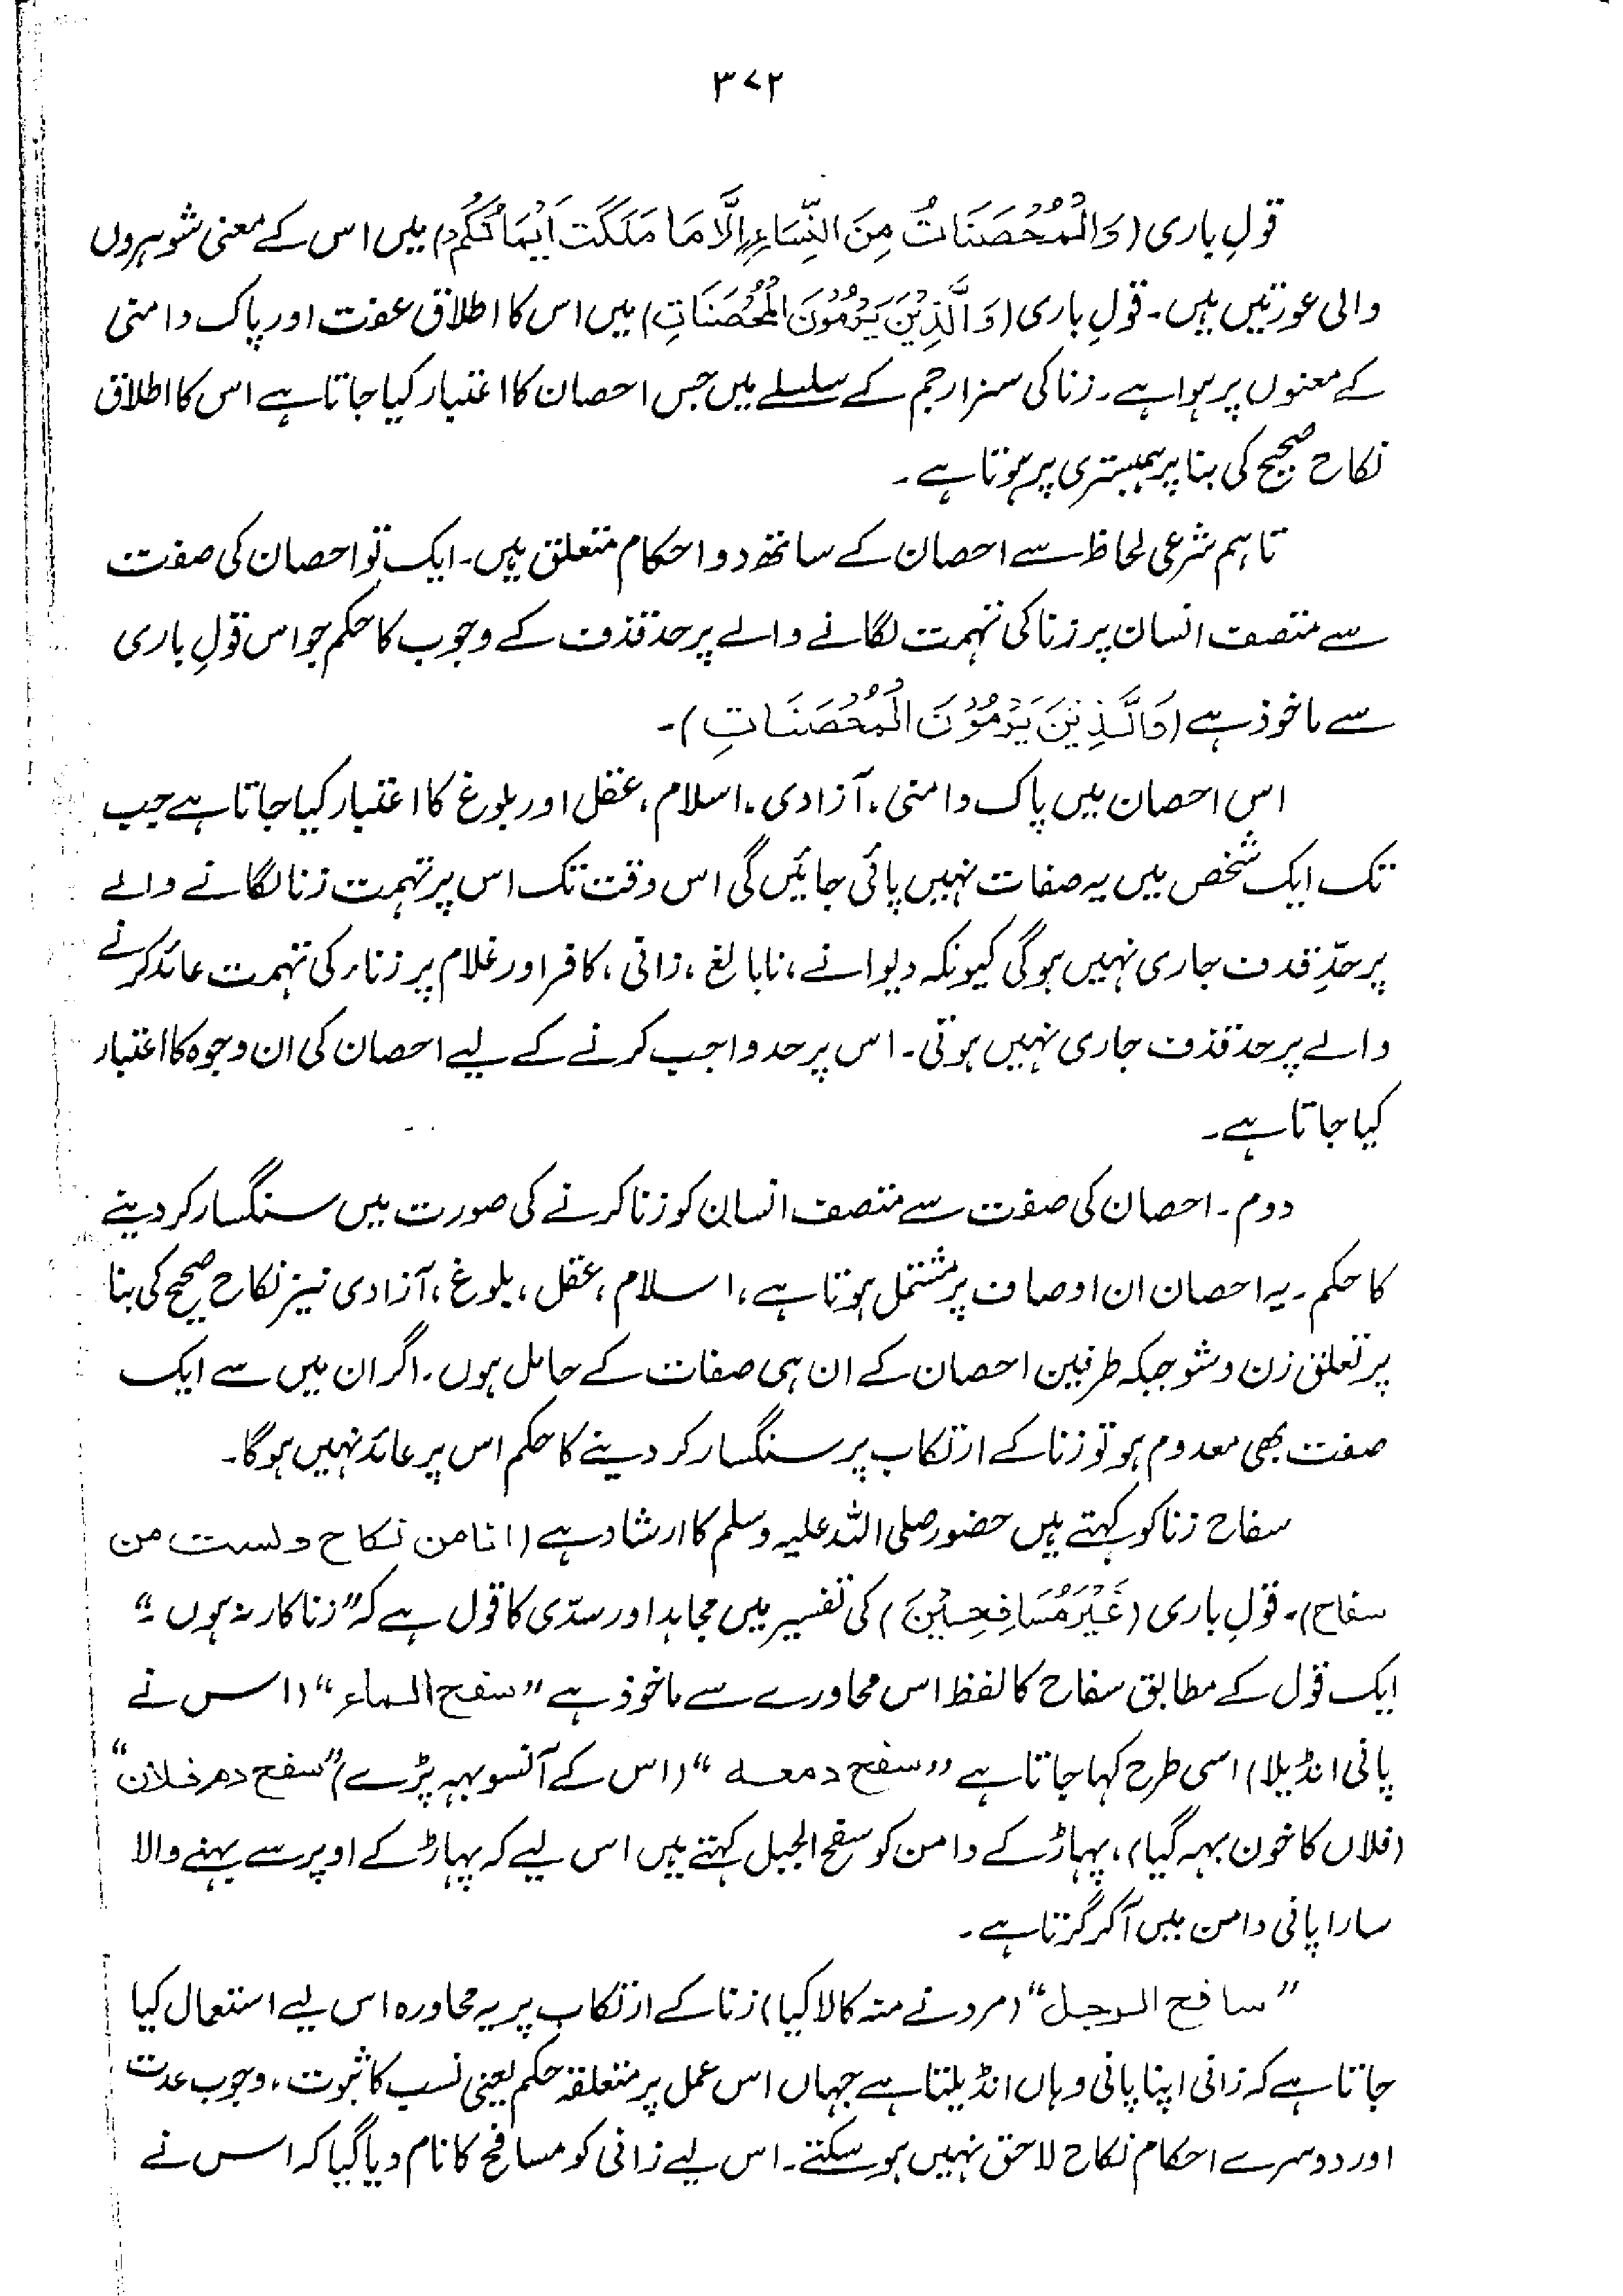 ۳۷۲
قولِ باری (وَالْمُحْصَنَاتُ مِنَ النِّسَاءِ اِلَّا مَا مَلَكَتْ اَيْمَانُكُمْ) میں اس کے معنی شوہروں
والی عورتیں ہیں۔ قولِ باری (وَالَّذِيْنَ يَرْمُوْنَ الْمُحْصَنَاتِ) میں اس کا اطلاق عفت اور پاک دامنی
کے معنوں پر ہوا ہے۔ زنا کی سزا رجم کے سلسلے میں جس احصان کا اعتبار کیا جاتا ہے اس کا اطلاق
نکاح صحیح کی بنا پر ہمبستری پر ہوتا ہے۔
تاہم شرعی لحاظ سے احصان کے ساتھ دو احکام متعلق ہیں۔ ایک تو احصان کی صفت
سے متصف انسان پر زنا کی تہمت لگانے والے پر حد قذف کے وجوب کا حکم جو اس قولِ باری
سے ماخوذ ہے (وَالَّذِيْنَ يَرْمُوْنَ الْمُحْصَنَاتِ)۔
اس احصان میں پاک دامنی، آزادی، اسلام، عقل اور بلوغ کا اعتبار کیا جاتا ہے جب
تک ایک شخص میں یہ صفات نہیں پائی جائیں گی اس وقت تک اس پر تہمت زنا لگانے والے
پر حدِّ قذف جاری نہیں ہوگی کیونکہ دیوانے، نابالغ، زانی، کافر اور غلام پر زناء کی تہمت عائد کرنے
والے پر حد قذف جاری نہیں ہوتی۔ اس پر حد واجب کرنے کے لیے احصان کی ان وجوہ کا اعتبار
کیا جاتا ہے۔
دوم۔ احصان کی صفت سے متصف انسان کو زنا کرنے کی صورت میں سنگسار کر دینے
کا حکم۔ یہ احصان ان اوصاف پر مشتمل ہوتا ہے، اسلام، عقل، بلوغ، آزادی نیز نکاح صحیح کی بنا
پر تعلق زن و شو جبکہ طرفین احصان کے ان ہی صفات کے حامل ہوں۔ اگر ان میں سے ایک
صفت بھی معدوم ہو تو زنا کے ارتکاب پر سنگسار کر دینے کا حکم اس پر عائد نہیں ہوگا۔
سفاح زنا کو کہتے ہیں حضور صلی اللہ علیہ وسلم کا ارشاد ہے (انا من نكاح ولست من
سفاح)۔ قولِ باری (غَيْرَ مُسَافِحِيْنَ) کی تفسیر میں مجاہد اور سدّی کا قول ہے کہ ”زنا کار نہ ہوں۔“
ایک قول کے مطابق سفاح کا لفظ اس محاورے سے ماخوذ ہے ”سفح الماء“ (اس نے
پانی انڈیلا) اسی طرح کہا جاتا ہے ”سفح دمعه“ (اس کے آنسو بہہ پڑے) ”سفح دم فلان“
(فلاں کا خون بہہ گیا)، پہاڑ کے دامن کو سفح الجبل کہتے ہیں اس لیے کہ پہاڑ کے اوپر سے بہنے والا
سارا پانی دامن میں آکر گرتا ہے۔
”سافح الرجل“ (مرد نے منہ کالا کیا) زنا کے ارتکاب پر یہ محاورہ اس لیے استعمال کیا
جاتا ہے کہ زانی اپنا پانی وہاں انڈیلتا ہے جہاں اس عمل پر متعلقہ حکم یعنی نسب کا ثبوت، وجوب عدت
اور دوسرے احکام نکاح لاحق نہیں ہو سکتے۔ اس لیے زانی کو مسافح کا نام دیا گیا کہ اس نے